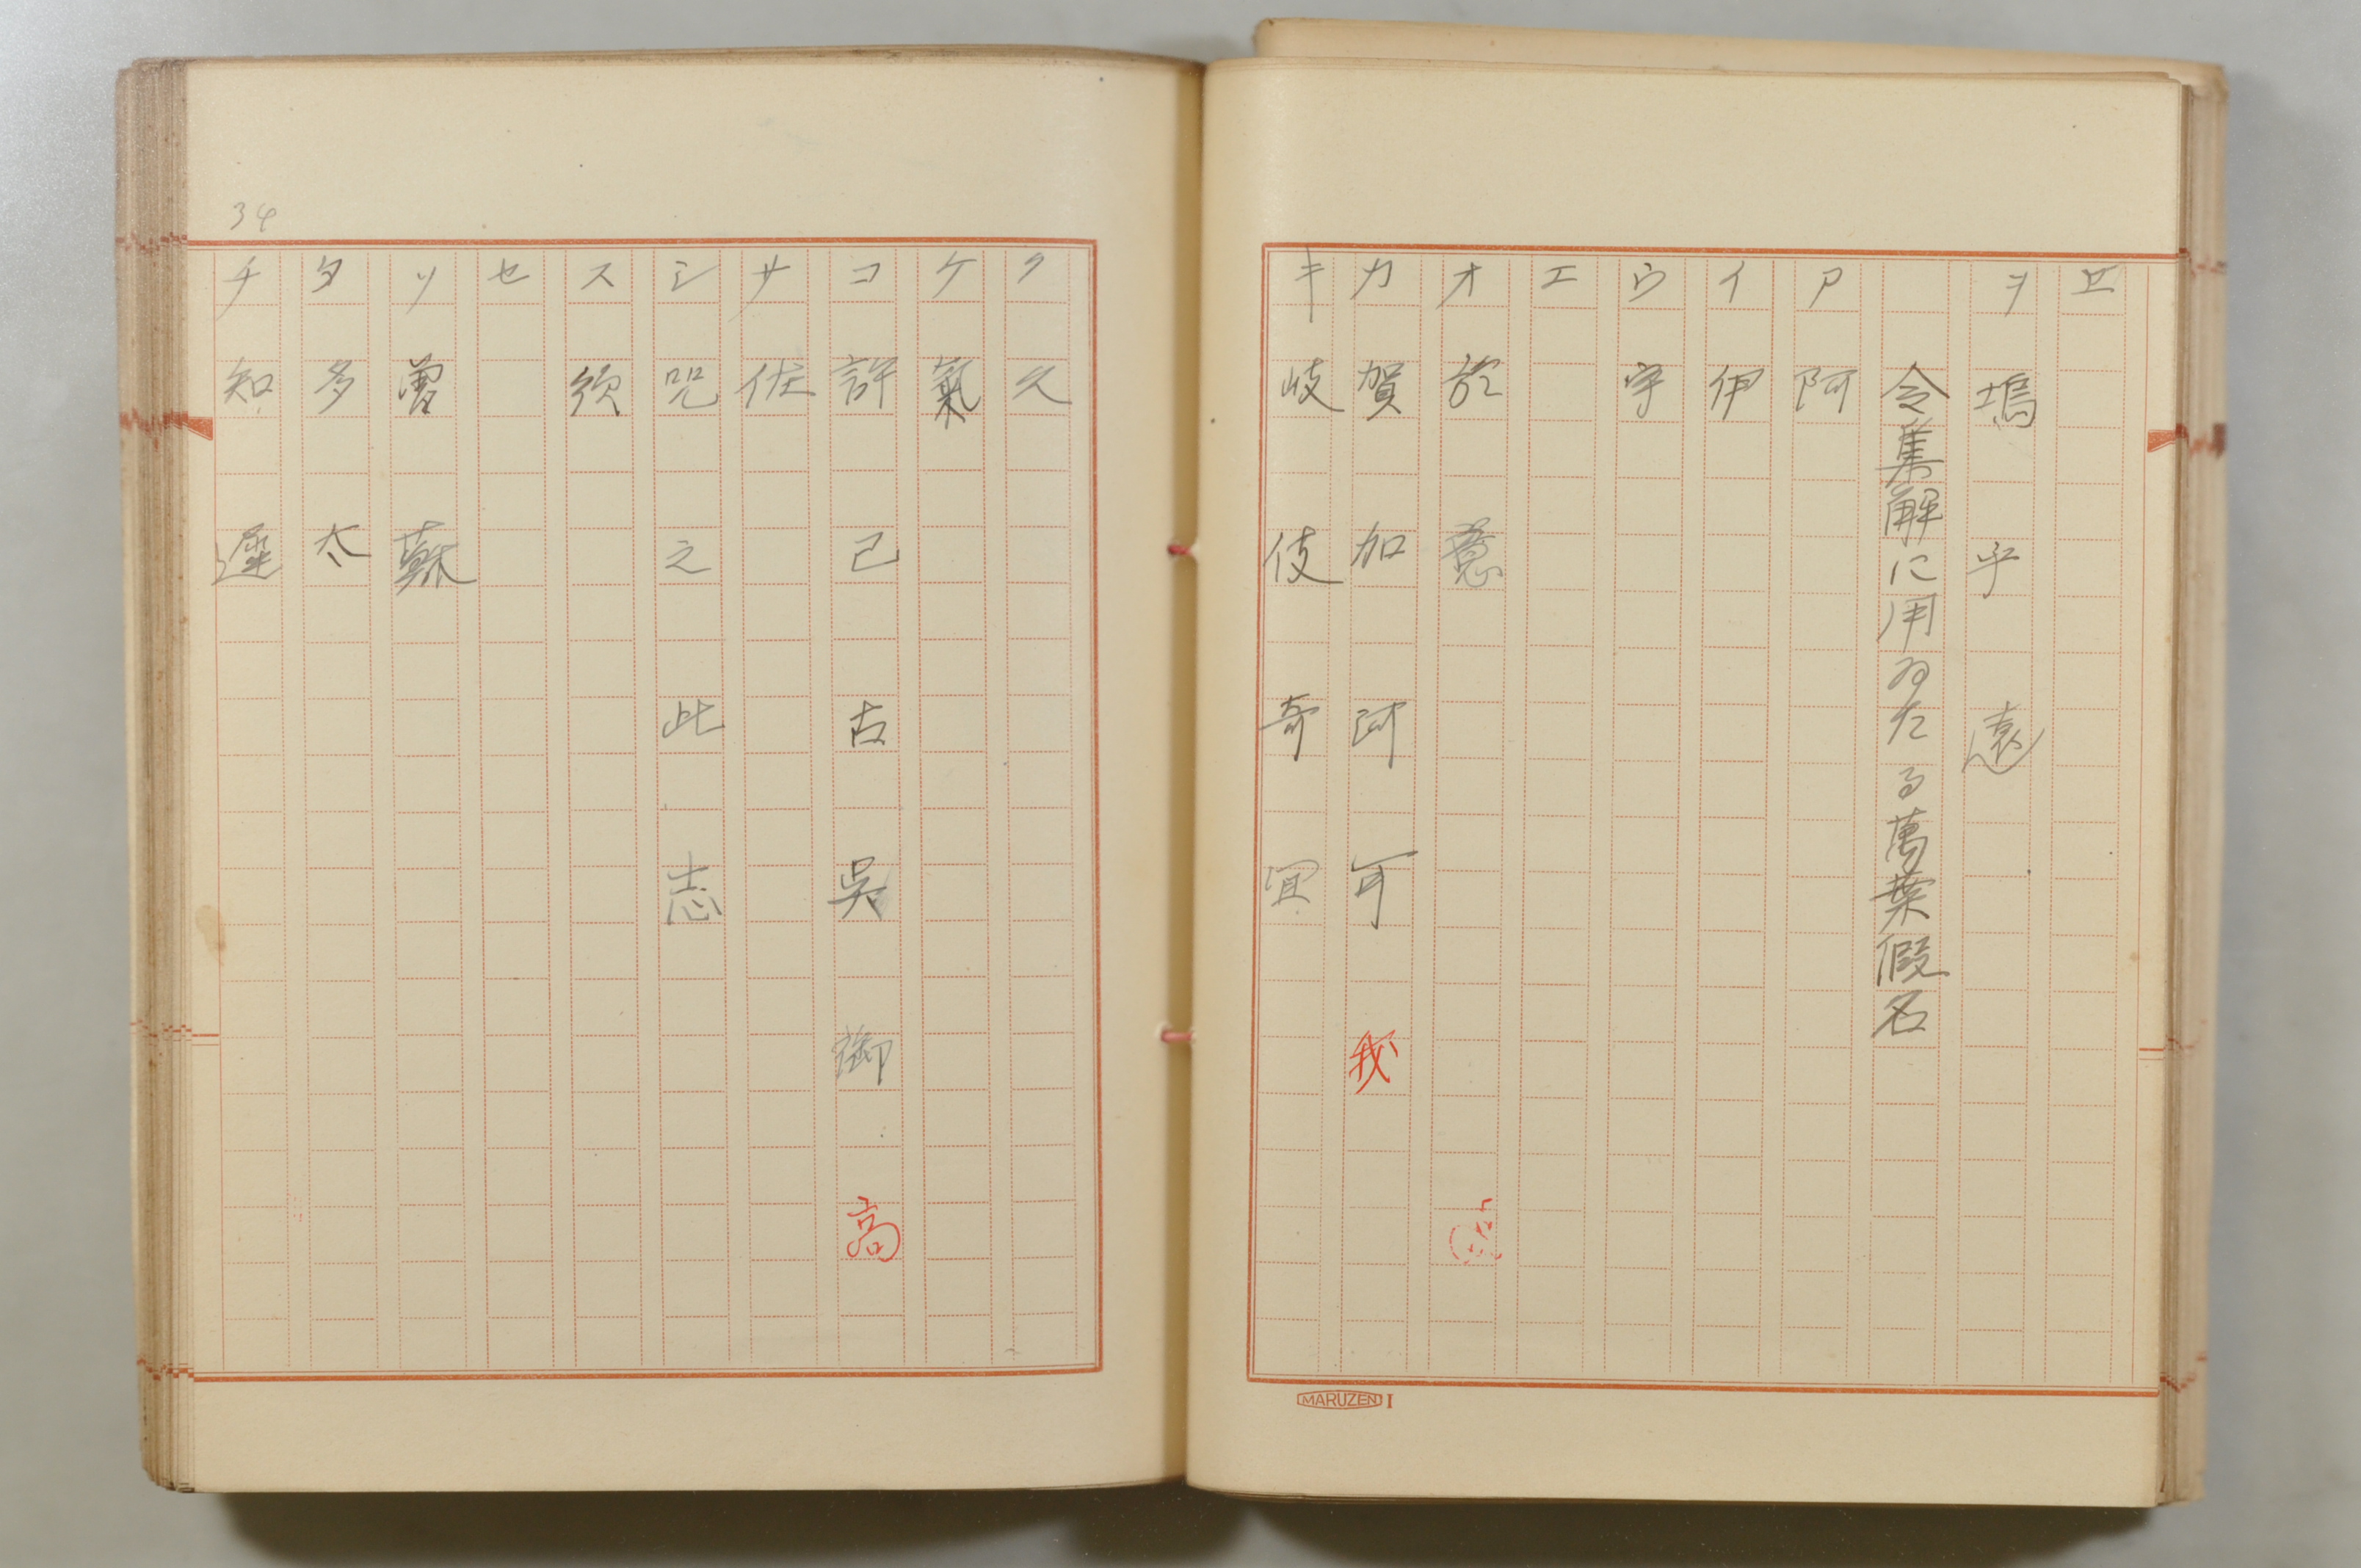 ヱ
ヲ 塢 乎 遠
令集解に用ゐたる萬葉假名
ア 阿
イ 伊
ウ 宇
エ
オ 於 意
カ 賀 加 訶 可 我
キ 岐 伎 奇 宜
MARUZEN I
ク 久
ケ 氣
コ 許 己 古 吳 御 高
サ 佐
シ 咒 之 此 志
ス 須
セ
ソ 曽 蘇
タ 多 太
チ 知 遅
34